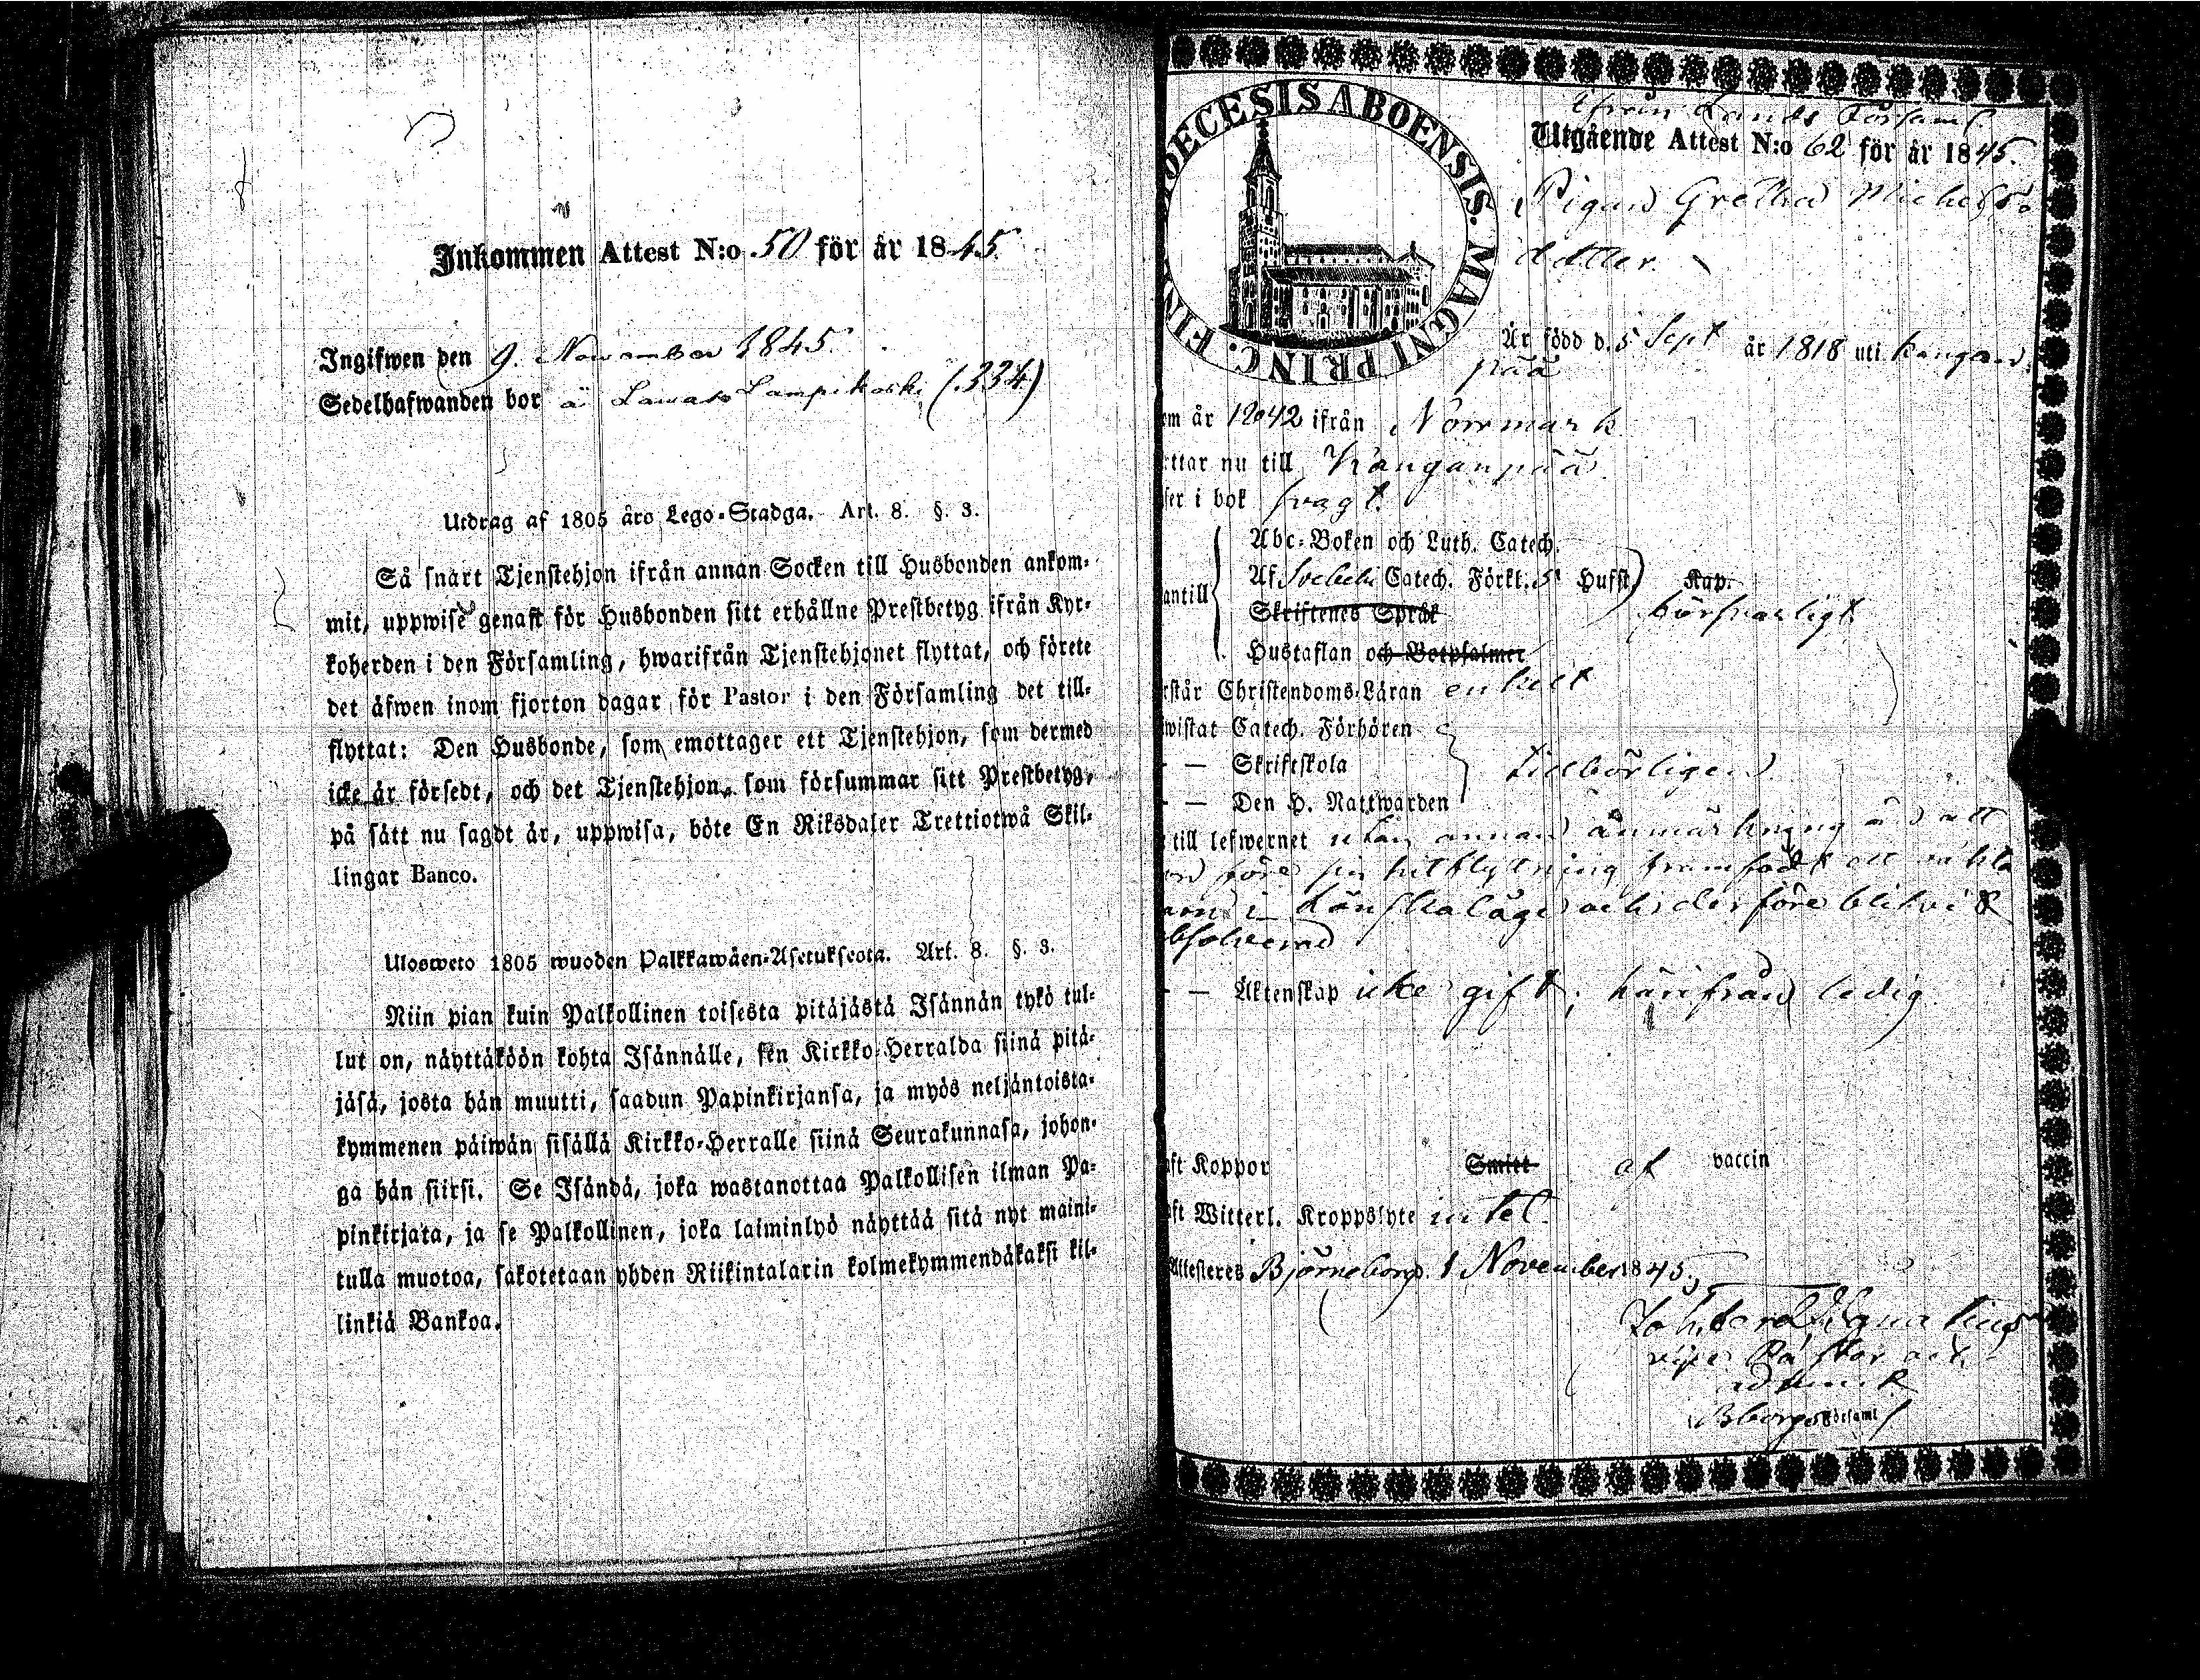 Inkommen Attest N:o 50 för år 1845.
Ingifwen den 9. November 1845.
Sedelhafwanden bor å Lawato Lampikoski (334)
Utdrag af 1805 åro Lego-Stadga. Art. 8. §. 3.
Så snart Tjenstehjon ifrån annan Socken till Husbonden ankom-
mit, uppwise genast för Husbonden sitt erhållne Prestbetyg ifrån Kyr-
koherden i den Församling, hwarifrån Tjenstehjonet flyttat, och förete
det äfwen inom fjorton dagar för Pastor i den Församling det till-
flyttat: Den Husbonde, som emottager ett Tjenstehjon, som dermed
icke är försedt, och det Tjenstehjon, som försummar sitt Prestbetyg,
på sätt nu sagdt är, uppwisa, böte En Riksdaler Trettiotwå Skil-
lingar Banco.
Ulosweto 1805 wuoden Palkkawäen-Asetuksesta. Art. 8. §. 3.
Niin pian kuin Palkollinen toisesta pitäjästä Isännän tykö tul-
lut on, näyttäköön kohta Isännälle, sen Kirkko-Herralda siinä pitä-
jäsä, josta hän muutti, saadun Papinkirjansa, ja myös neljäntoista-
kymmenen päiwän sisällä Kirkko-Herralle siinä Seurakunnasa, johon-
ga hän siirsi. Se Isändä, joka wastanottaa Palkollisen ilman Pa-
pinkirjata, ja se Palkollinen, joka laiminlyö näyttää sitä nyt maini-
tulla muotoa, sakotetaan yhden Riikintalarin kolmekymmendäkaksi kil-
linkiä Bankoa.
DIOECESIS ABOENSIS. MAGNI PRINC. FIN
ifrån Lands Församl.
Utgående Attest N:o 62 för år 1845.
Pigan Gretha Michels
dotter.
Är född d. 5 Sept år 1818 uti Kangan
pää
om år 1842 ifrån Norrmark
ttar nu till Kanganpää
ser i bok svagt.
Abc-Boken och Luth. Catech.
antill Af Svebelii Catech. Förkl. 5 Hufst Kap.
Skriftenes Språk försvarligt
Hustaflan och Botpsalmer
rstår Christendoms-Läran enkelt
wistat Catech. Förhören
— Skriftskola tillbörligen
— Den H. Nattwarden
till lefwernet utan annan anmärkning än att
före sin hitflyttning framfödt ett oäkta
i lönskaläge och derföre blifvit
bsolverad
— Äktenskap icke gift; härifrån ledig
ft Koppor Smitt af vaccin
ft Witterl. Kroppslyte intet.
Attesteres Björneborg. 1 November 1845.
Pastor
Bborgs församl